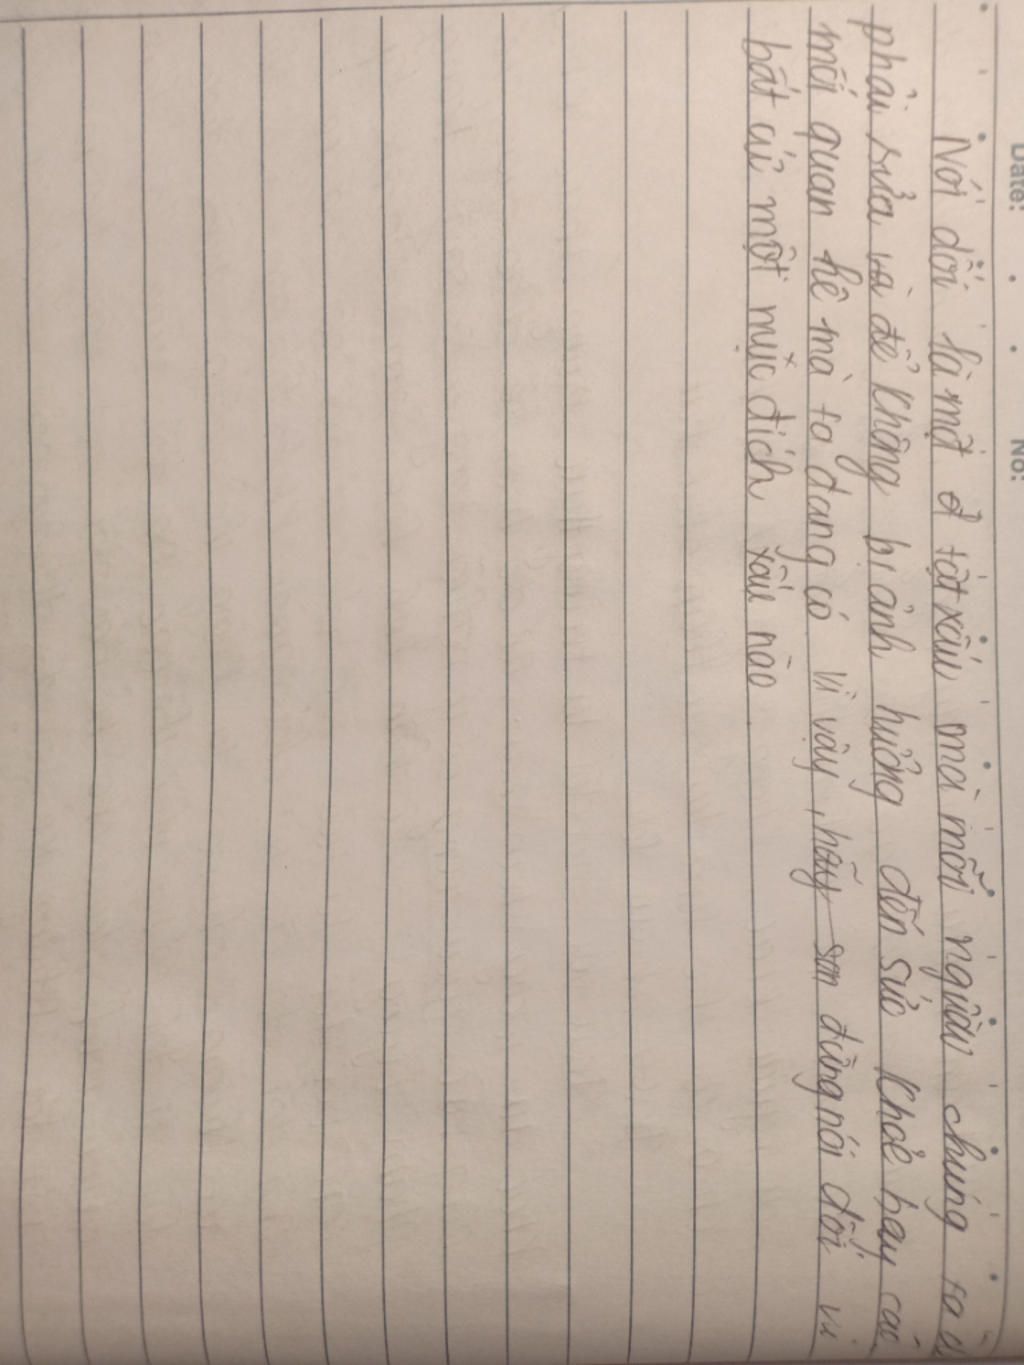 Date: No:
Nói dối là một tật xấu mà mỗi người chúng ta
phải sửa và để không bị ảnh hưởng đến sức khoẻ hay các
mối quan hệ mà ta đang có vì vậy, hãy đừng nói dối vì
bất cứ một mục đích xấu nào.